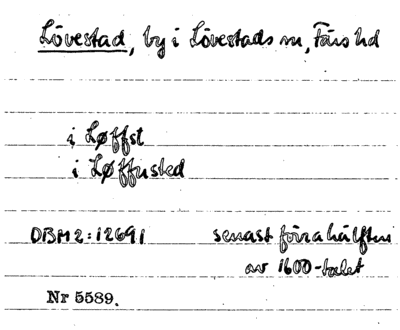 Lövestad, by i Lövestads sn, Färs hd
i Løffst
i Løffusted
DBM 2:12691 senast förra hälften
av 1600-talet
Nr 5589.